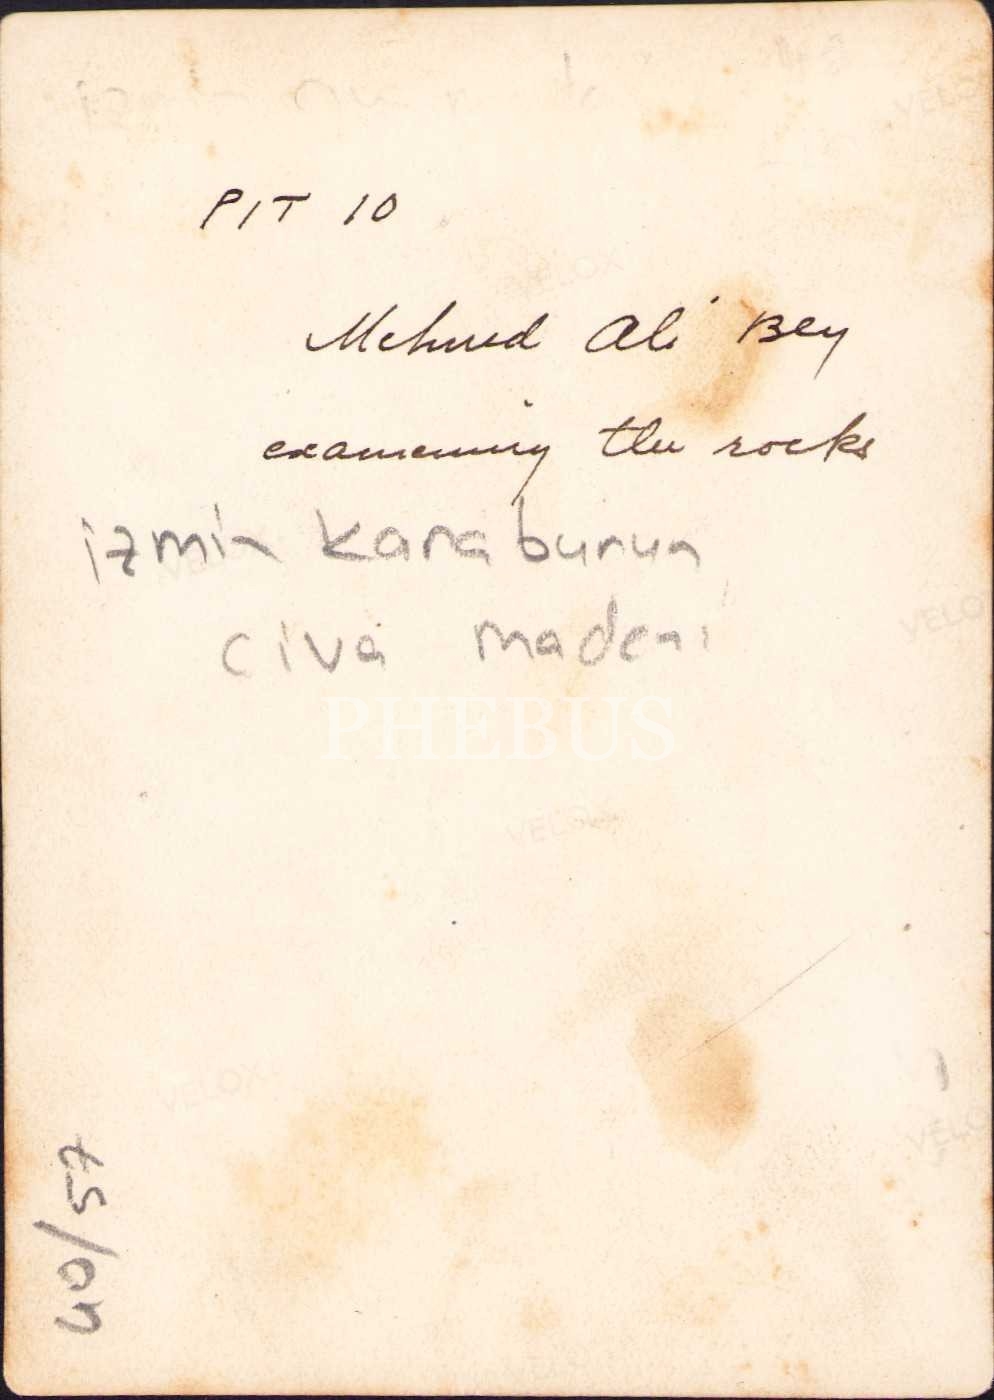 PIT 10
Mehmed Ali Bey
examening the rocks
izmir karaburun
civa madeni
PHEBUS
VELOX
VELOX
VELOX
VELOX
VELOX
VELOX
40/57